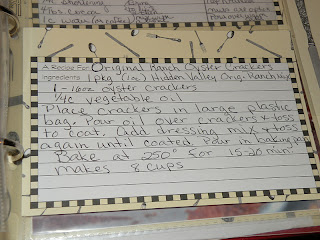 A Recipe For Original Ranch Oyster Crackers
Ingredients 1 pkg (1oz) Hidden Valley Org. Ranch
1 - 16oz oyster crackers
1/4c vegetable oil
Place crackers in large plastic
bag. Pour oil over crackers & toss
to coat. Add dressing mix & toss
again until coated. Pour in baking pan
Bake at 250° for 15-20 min.
makes 8 cups